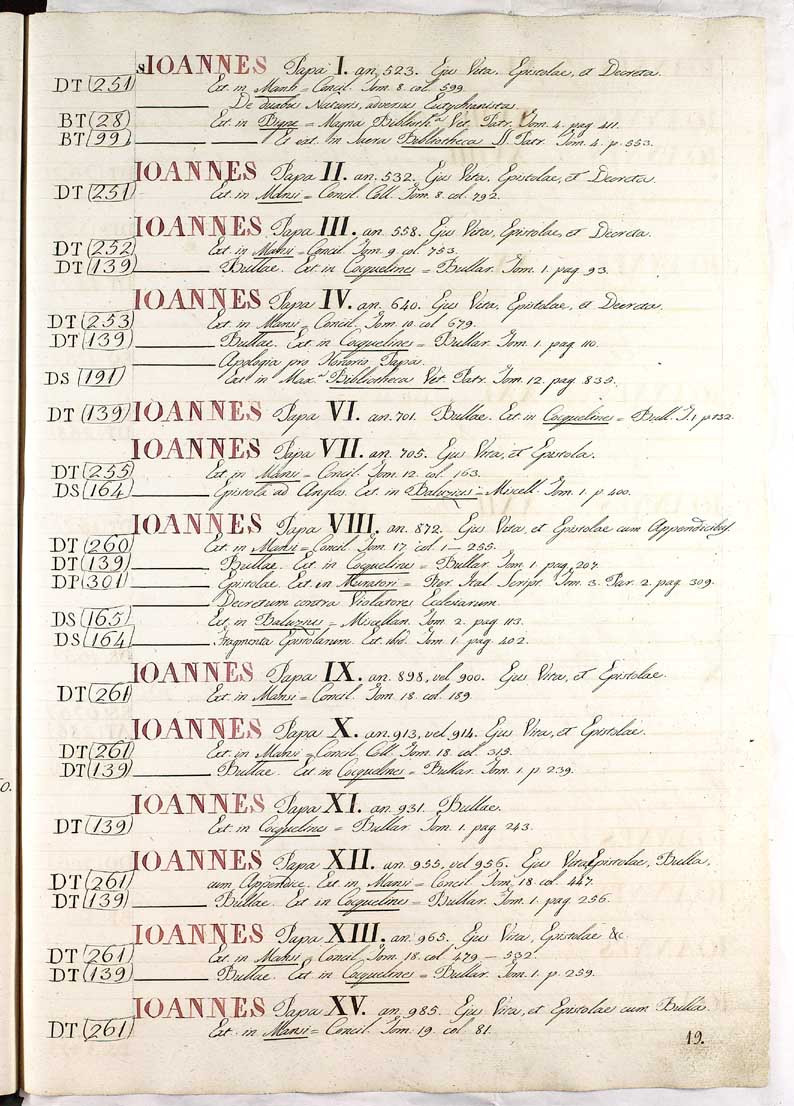 S IOANNES Papa I. an. 523. Ejus Vita, Epistolae, et Decreta.
DT (251) Ext. in Mansi = Concil. Tom. 8. col. 599.
De duabus Naturis, adversus Eutychianistas
BT (28) Ext. in Bigne = Magna Biblioth.ª Vet. Patr. Tom. 4. pag. 411.
BT (99) Et eat. in Sacra Bibliotheca SS. Patr. Tom. 4. p. 553.
IOANNES Papa II. an. 532. Ejus Vita, Epistolae, et Decreta.
DT (251) Ext. in Mansi = Concil. Coll. Tom. 8. col. 792.
IOANNES Papa III. an. 558. Ejus Vita, Epistolae, et Decreta.
DT (252) Ext. in Mansi = Concil. Tom. 9. col. 753.
DT (139) Bullae. Ext. in Cocquelines = Bullar. Tom. 1. pag. 93.
IOANNES Papa IV. an. 640. Ejus Vita, Epistolae, et Decreta.
DT (253) Ext. in Mansi = Concil. Tom. 10. col. 679.
DT (139) Bullae. Ext. in Cocquelines = Bullar. Tom. 1. pag. 110.
Apologia pro Honorio Papa.
DS (191) Ext. in Max.ª Bibliotheca Vet. Patr. Tom. 12. pag. 835.
DT (139) IOANNES Papa VI. an. 701. Bullae. Ext. in Cocquelines = Bull. T. 1. p. 132.
IOANNES Papa VII. an. 705. Ejus Vita, et Epistola.
DT (255) Ext. in Mansi = Concil. Tom. 12. col. 163.
DS (164) Epistola ad Anglos. Ext. in Baluzius = Miscell. Tom. 1. p. 400.
IOANNES Papa VIII. an. 872. Ejus Vita, et Epistolae cum Appendicibus.
DT (260) Ext. in Mansi = Concil. Tom. 17. col. 1 - 255.
DT (139) Bullae. Ext. in Cocquelines = Bullar. Tom. 1. pag. 207.
DP (301) Epistolae. Ext. in Muratori = Rer. Ital. Script. Tom. 3. Par. 2. pag. 309.
Decretum contra Violatores Ecclesiarum.
DS (165) Ext. in Baluzius = Miscellan. Tom. 2. pag. 113.
DS (164) Fragmenta Epistolarum. Ext. ibid. Tom. 1. pag. 402.
IOANNES Papa IX. an. 898, vel 900. Ejus Vita, et Epistolae.
DT (261) Ext. in Mansi = Concil. Tom. 18. col. 189.
IOANNES Papa X. an. 913, vel 914. Ejus Vita, et Epistolae.
DT (261) Ext. in Mansi = Concil. Coll. Tom. 18. col. 313.
DT (139) Bullae. Ext. in Cocquelines = Bullar. Tom. 1. p. 239.
IOANNES Papa XI. an. 931. Bullae.
DT (139) Ext. in Cocquelines = Bullar. Tom. 1. pag. 243.
IOANNES Papa XII. an. 955, vel 956. Ejus Vita, Epistolae, Bulla,
DT (261) cum Appendice. Ext. in Mansi = Concil. Tom. 18. col. 447.
DT (139) Bullae. Ext. in Cocquelines = Bullar. Tom. 1. pag. 256.
IOANNES Papa XIII. an. 965. Ejus Vita, Epistolae &c.
DT (261) Ext. in Mansi = Concil. Tom. 18. col. 479 - 532.
DT (139) Bullae. Ext. in Cocquelines = Bullar. Tom. 1. p. 259.
IOANNES Papa XV. an. 985. Ejus Vita, et Epistolae cum Bulla.
DT (261) Ext. in Mansi = Concil. Tom. 19. col. 81.
19.